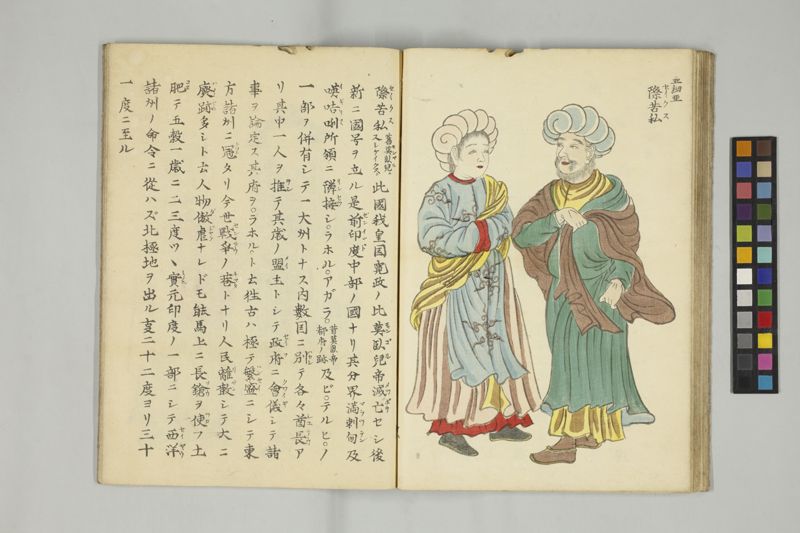 亞細亞
際苦私
セイクス
際苦私 舊莫臥兒 此國我皇国寛政ノ比莫臥兒帝滅亡セシ後
新ニ國号ヲ立ル是前印度中部ノ國ナリ其分界満剌甸及
所領ニ隣接シラホルアガラ 昔莫臥兒帝都府ノ跡 及ピデルヒノ
一部ヲ併有シテ一大州トナス内數国ニ別テ各々酋長ア
リ其中一人ヲ推テ其歳ノ盟主トシテ政府ニ會儀シテ諸
事ヲ論定ス其府ヲラホルト云徃古ハ極テ繁密ニシテ東
方諸州ニ冠タリ今世戰争ノ巷トナリ人民離散シテ大ニ
廢跡多シト云人物倣虐ナレドモ能馬上ニ長鎗ヲ使フ土
肥テ五穀一歳ニ二三度ツヽ實元印度ノ一部ニシテ西洋
諸州ノ命令ニ從ハズ北極地ヲ出ル𪜈二十二度ヨリ三十
一度ニ至ル